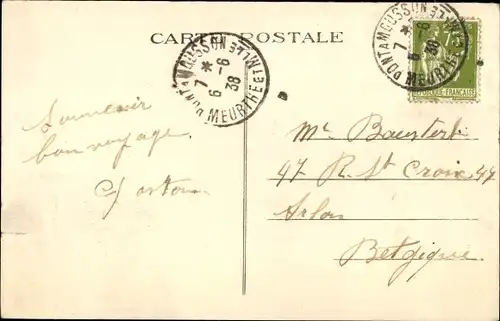 CARTE POSTALE
PONT A MOUSSON
MEURTHE ET MLLE
7 * 6-6
38
PONT A MOUSSON
MEURTHE ET MLLE
7 * 6-6
38
75
REPUBLIQUE-FRANCAISE
Souvenir
bon voyage
Gaston
Mr
47 R. St Croix 47
Arlon
Belgique